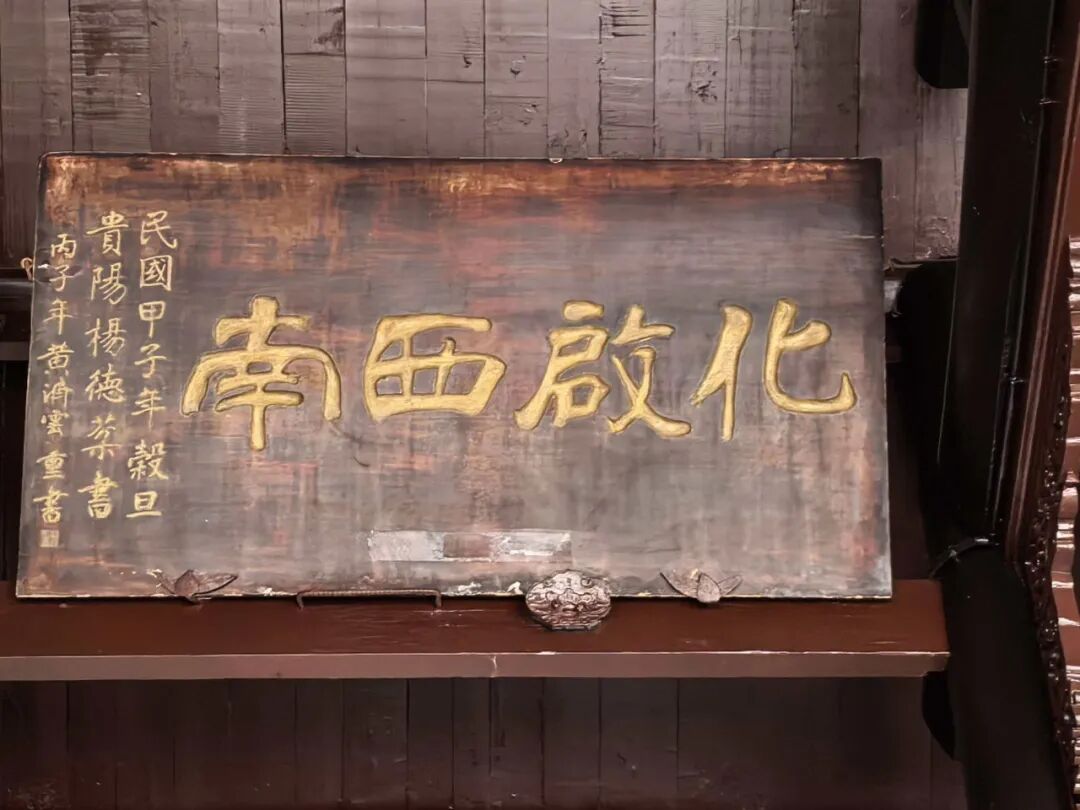 化啟西南
民國甲子年穀旦
貴陽楊德棻書
丙子年黄濟雲重書